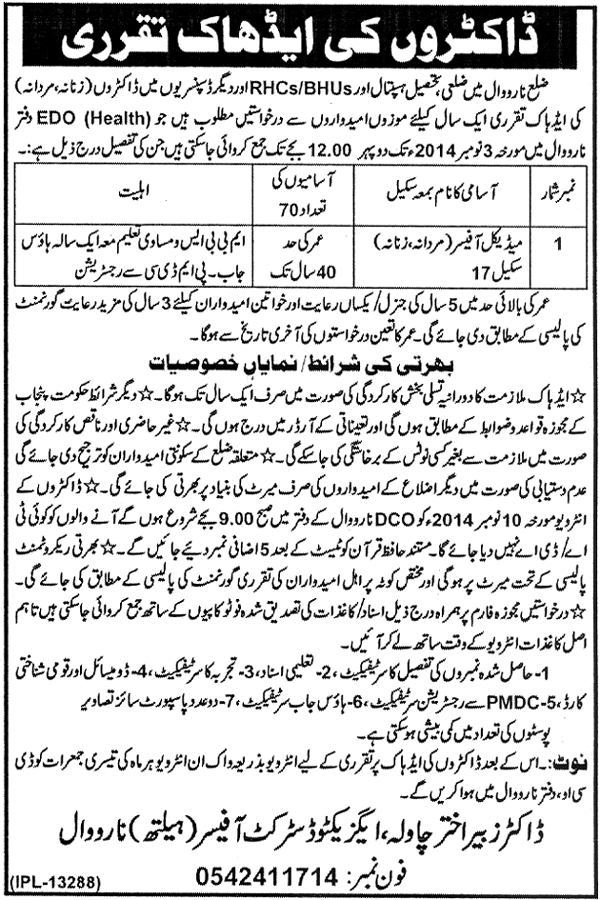 ڈاکٹروں کی ایڈھاک تقرری
ضلع نارووال میں ضلعی، تحصیل ہسپتال اور RHCs/BHUs اور دیگر ڈسپنسریوں میں ڈاکٹروں (زنانہ، مردانہ)
کی ایڈہاک تقرری ایک سال کیلئے موزوں امیدواروں سے درخواستیں مطلوب ہیں جو EDO (Health) دفتر
نارووال میں مورخہ 3 نومبر 2014ء تک دوپہر 12.00 بجے تک جمع کروائی جاسکتی ہیں جن کی تفصیل درج ذیل ہے:۔
نمبر شمار آسامی کا نام بمعہ سکیل آسامیوں کی تعداد 70 اہلیت
1 میڈیکل آفیسر (مردانہ، زنانہ) سکیل 17 عمر کی حد 40 سال تک ایم بی بی ایس و مساوی تعلیم معہ ایک سالہ ہاؤس جاب۔ پی ایم ڈی سی سے رجسٹریشن
عمر کی بالائی حد میں 5 سال کی جنرل/یکساں رعایت اور خواتین امیدواران کیلئے 3 سال کی مزید رعایت گورنمنٹ
کی پالیسی کے مطابق دی جائے گی۔ عمر کا تعین درخواستوں کی آخری تاریخ سے ہوگا۔
بھرتی کی شرائط/نمایاں خصوصیات
☆ایڈہاک ملازمت کا دورانیہ تسلی بخش کارکردگی کی صورت میں صرف ایک سال تک ہوگا۔ ☆دیگر شرائط حکومت پنجاب
کے مجوزہ قواعد و ضوابط کے مطابق ہوں گی اور تعیناتی کے آرڈر میں درج ہوں گی۔ ☆غیر حاضری اور ناقص کارکردگی کی
صورت میں ملازمت سے بغیر کسی نوٹس کے برخاستگی کی جاسکے گی۔ ☆متعلقہ ضلع کے سکونتی امیدواران کو ترجیح دی جائے گی
عدم دستیابی کی صورت میں دیگر اضلاع کے امیدواروں کی صرف میرٹ کی بنیاد پر بھرتی کی جائے گی۔ ☆ڈاکٹروں کے
انٹرویو مورخہ 10 نومبر 2014ء کو DCO نارووال کے دفتر میں صبح 9.00 بجے شروع ہوں گے آنے والوں کو کوئی ٹی
اے/ڈی اے نہیں دیا جائے گا۔ مستند حافظ قرآن کو ٹیسٹ کے بعد 5 اضافی نمبر دیئے جائیں گے۔ ☆بھرتی ریکروٹمنٹ
پالیسی کے تحت میرٹ پر ہوگی اور مختص کوٹہ پر اہل امیدواران کی تقرری گورنمنٹ کی پالیسی کے مطابق کی جائے گی۔
☆درخواستیں مجوزہ فارم پر ہمراہ درج ذیل اسناد/کاغذات کی تصدیق شدہ فوٹو کاپیوں کے ساتھ جمع کروائی جاسکتی ہیں تاہم
اصل کاغذات انٹرویو کے وقت ساتھ لے کر آئیں۔
1- حاصل شدہ نمبروں کی تفصیل کا سرٹیفکیٹ، 2- تعلیمی اسناد، 3- تجربہ کا سرٹیفکیٹ، 4- ڈومیسائل اور قومی شناختی
کارڈ، 5-PMDC سے رجسٹریشن سرٹیفکیٹ، 6- ہاؤس جاب سرٹیفکیٹ، 7- دو عدد پاسپورٹ سائز تصاویر
پوسٹوں کی تعداد میں کمی بیشی ہوسکتی ہے۔
نوٹ:۔ اس کے بعد ڈاکٹروں کی ایڈہاک پر تقرری کے لیے انٹرویو بذریعہ واک ان انٹرویو ہر ماہ کی تیسری جمعرات کو ڈی
سی او، دفتر نارووال میں ہوا کریں گے۔
ڈاکٹر زبیر اختر چاولہ، ایگزیکٹو ڈسٹرکٹ آفیسر (ہیلتھ) نارووال
فون نمبر: 0542411714
(IPL-13288)